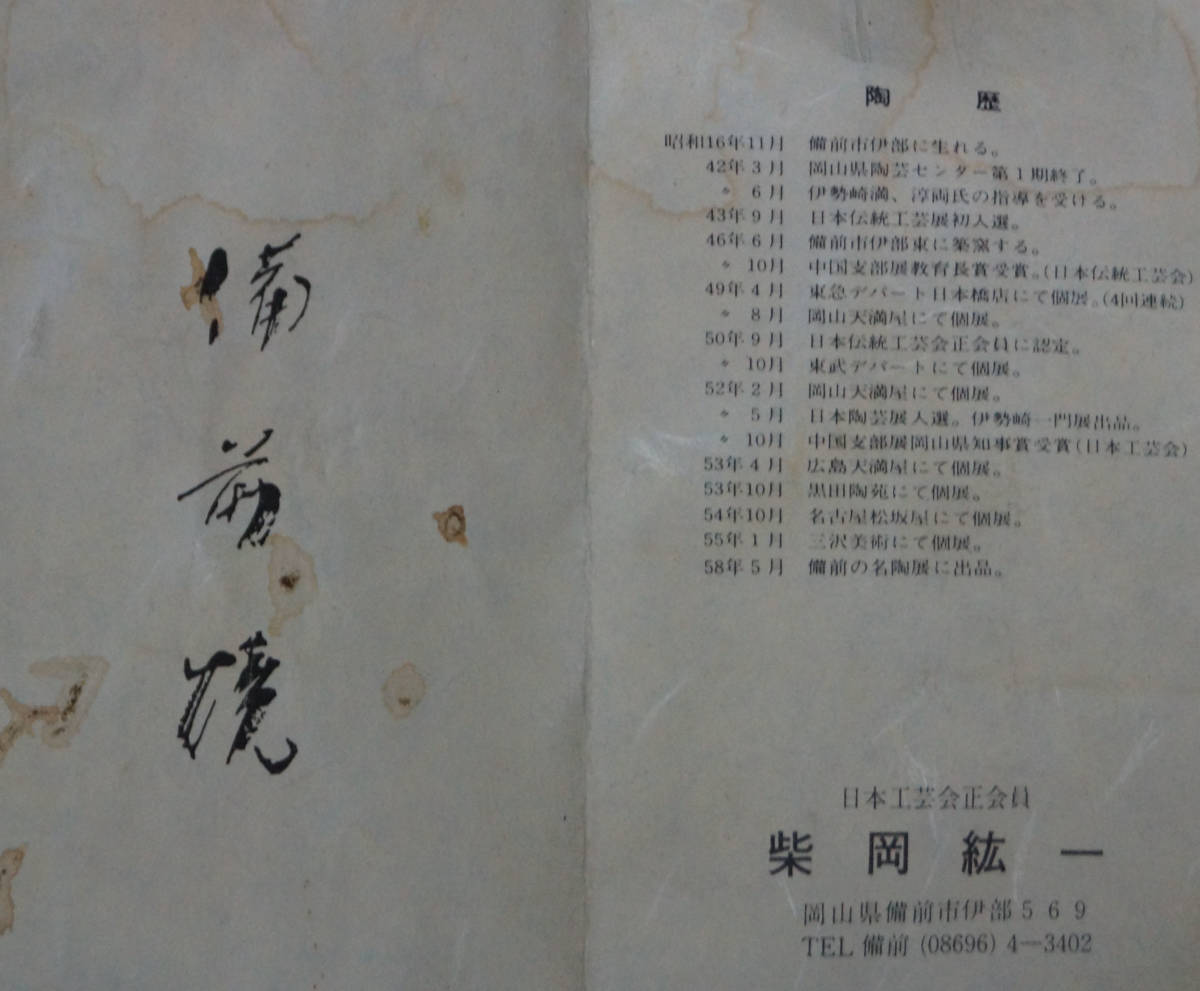 備前焼
陶歴
昭和16年11月 備前市伊部に生れる。
42年3月 岡山県陶芸センター第1期終了。
〃 6月 伊勢崎満、淳両氏の指導を受ける。
43年9月 日本伝統工芸展初入選。
46年6月 備前市伊部東に築窯する。
〃 10月 中国支部展教育長賞受賞。(日本伝統工芸会)
49年4月 東急デパート日本橋店にて個展。(4回連続)
〃 8月 岡山天満屋にて個展。
50年9月 日本伝統工芸会正会員に認定。
〃 10月 東武デパートにて個展。
52年2月 岡山天満屋にて個展。
〃 5月 日本陶芸展入選。伊勢崎一門展出品。
〃 10月 中国支部展岡山県知事賞受賞(日本工芸会)
53年4月 広島天満屋にて個展。
53年10月 黒田陶苑にて個展。
54年10月 名古屋松坂屋にて個展。
55年1月 三沢美術にて個展。
58年5月 備前の名陶展に出品。
日本工芸会正会員
柴岡紘一
岡山県備前市伊部569
TEL 備前 (08696) 4―3402